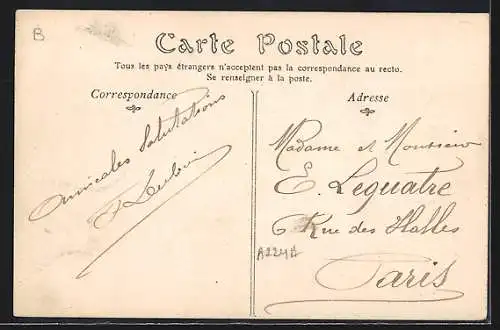 B
Carte Postale
Tous les pays étrangers n'acceptent pas la correspondance au recto.
Se renseigner à la poste.
Correspondance
Adresse
Amicales Salutations
Madame et Monsieur
E. Lequatre
6 Rue des Halles
Paris
A224B